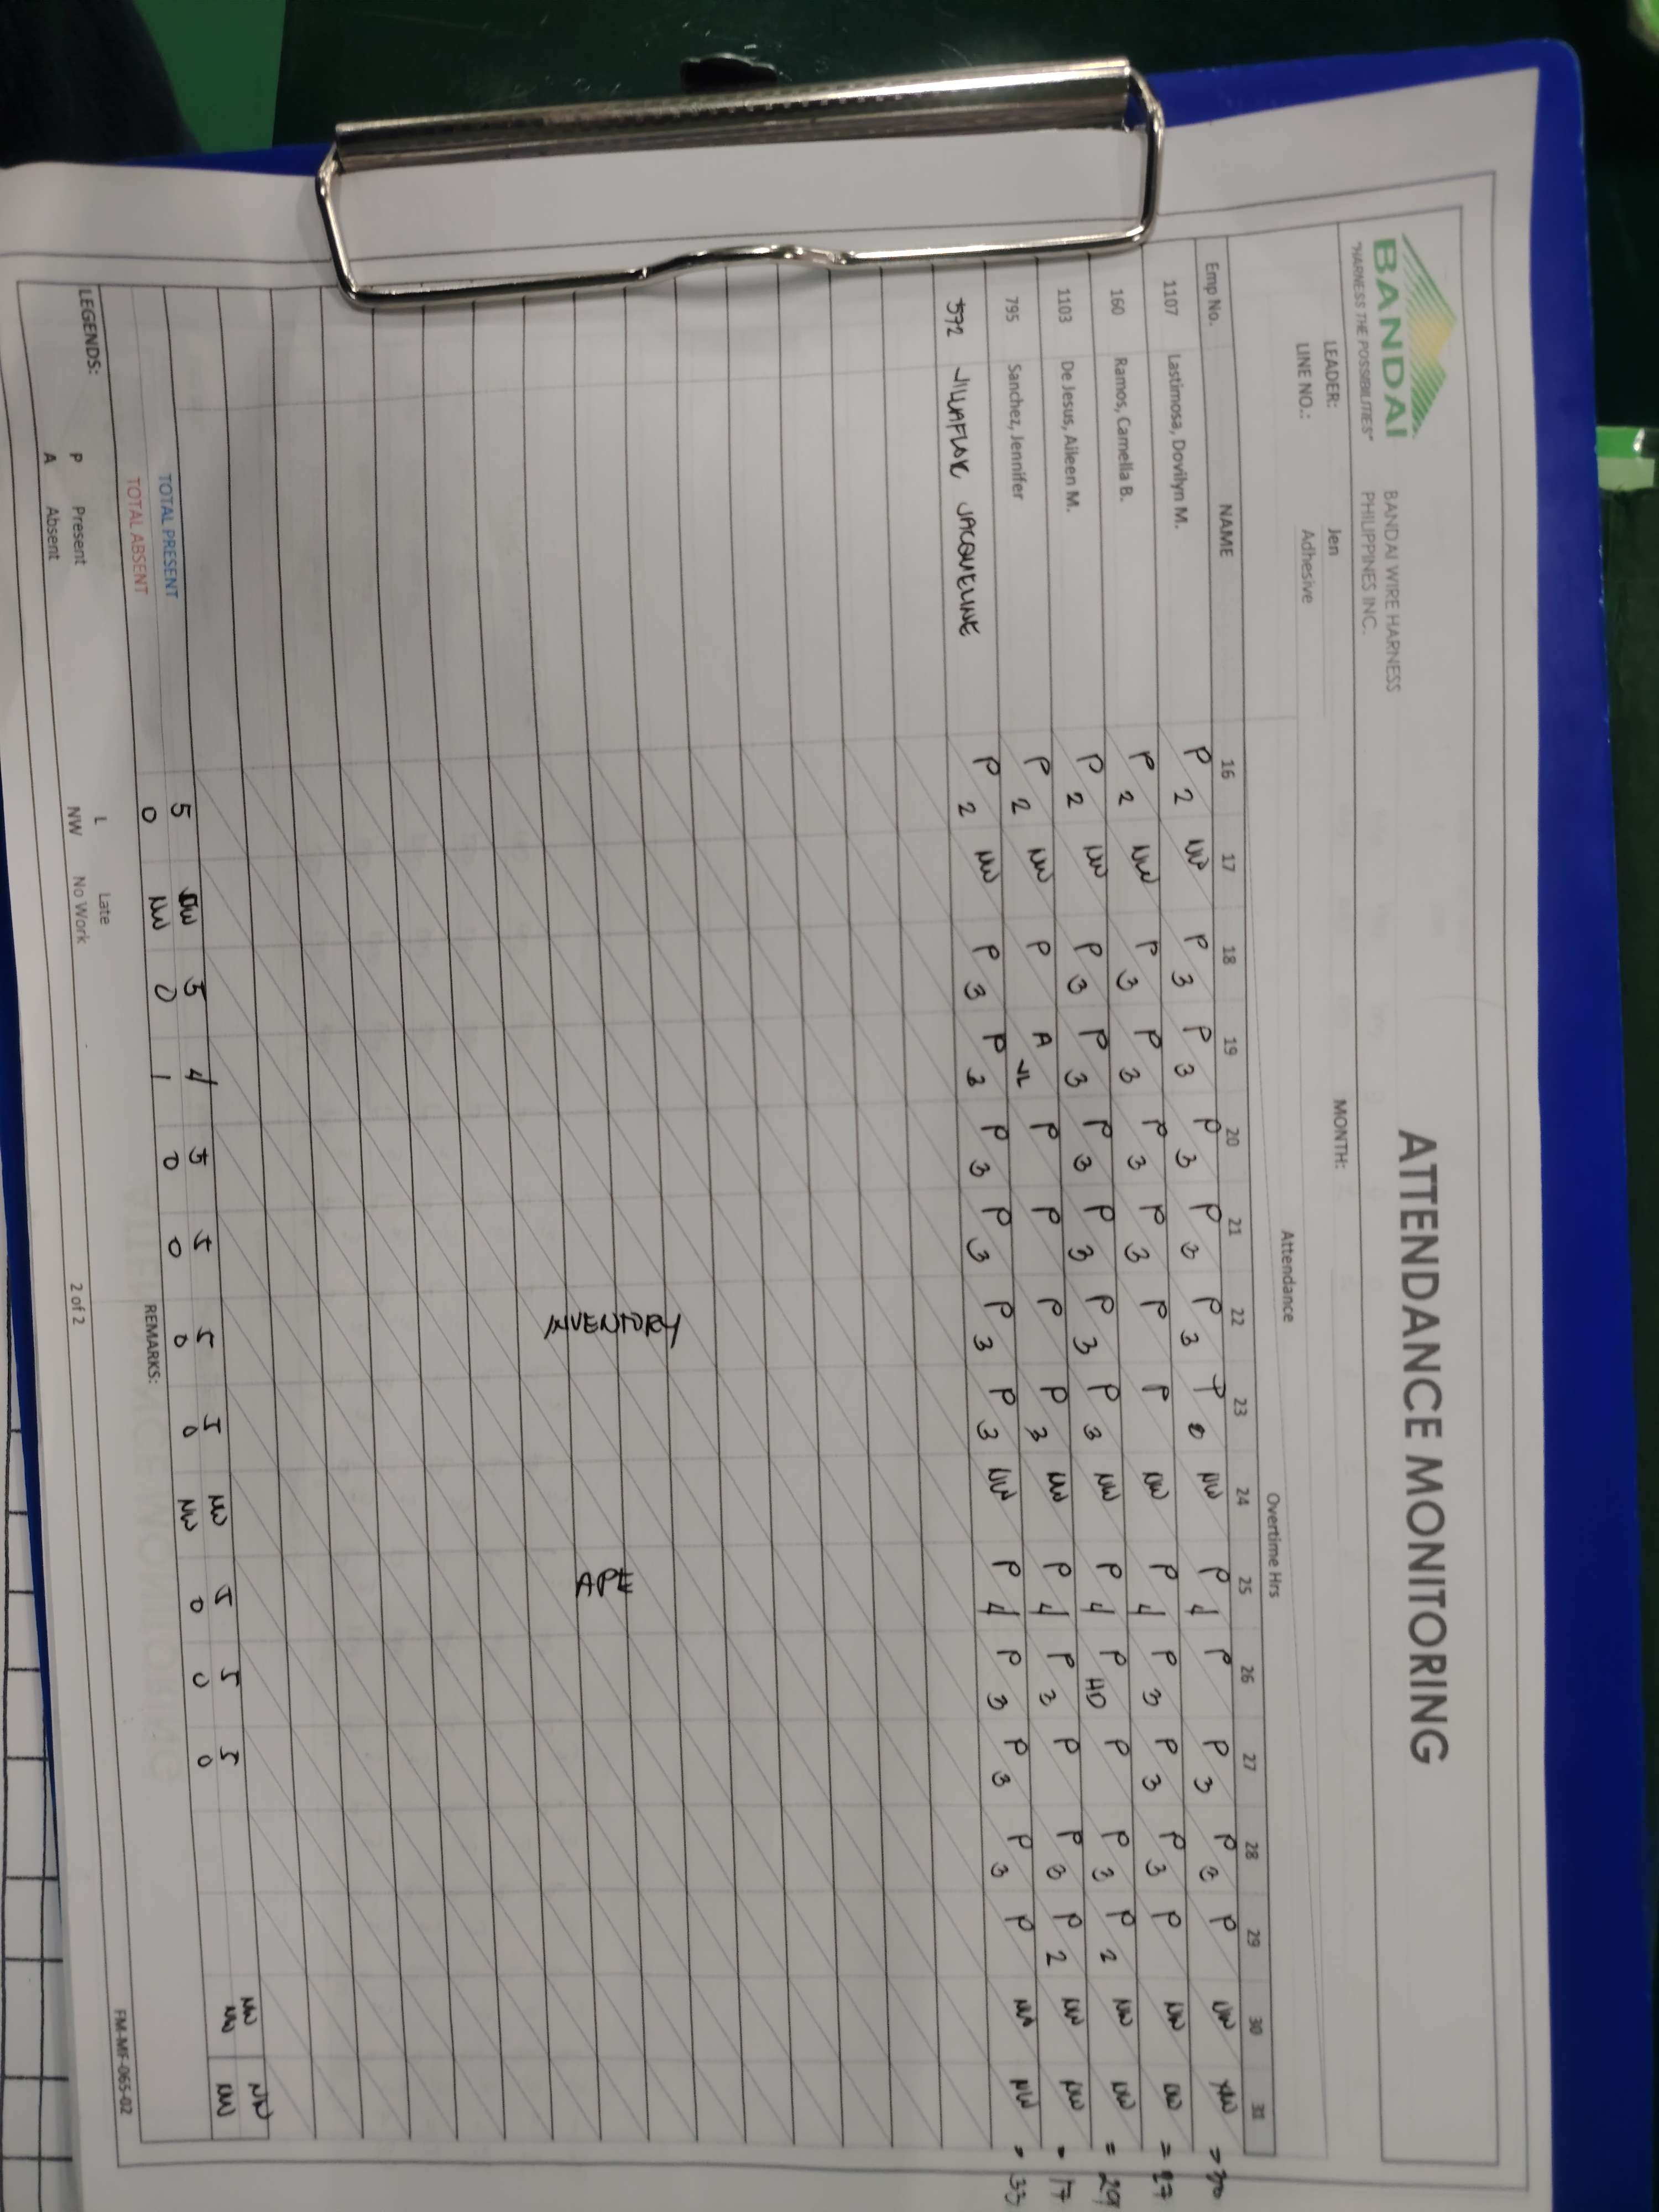 BANDAI
"HARNESS THE POSSIBILITIES"
BANDAI WIRE HARNESS
PHILIPPINES INC.
ATTENDANCE MONITORING
LEADER: Jen MONTH:
LINE NO.: Adhesive
Attendance Overtime Hrs
Emp No. NAME 16 17 18 19 20 21 22 23 24 25 26 27 28 29 30 31
1107 Lastimosa, Dovilyn M. P 2 NW P 3 P 3 P 3 P 3 P 3 P 0 NW P 4 P P 3 P 3 P NW NW = 30
160 Ramos, Camella B. P 2 NW P 3 P 3 P 3 P 3 P P NW P 4 P 3 P 3 P 3 P NW NW = 27
1103 De Jesus, Aileen M. P 2 NW P 3 P 3 P 3 P 3 P 3 P 3 NW P 4 P HD P P 3 P 2 NW NW = 29
795 Sanchez, Jennifer P 2 NW P A VL P P P P 3 NW P 4 P 3 P P 3 P 2 NW NW = 17
592 VILLAFLOR JACQUELINE P 2 NW P 3 P 3 P 3 P 3 P 3 P 3 NW P 4 P 3 P 3 P 3 P NW NW = 33
INVENTORY
APE
TOTAL PRESENT 5 NW 5 4 5 5 5 5 NW 5 5 5 NW NW
TOTAL ABSENT 0 NW 0 1 0 0 0 0 NW 0 0 0 NW NW
REMARKS:
LEGENDS: P Present L Late
A Absent NW No Work
2 of 2
FM-MF-065-02